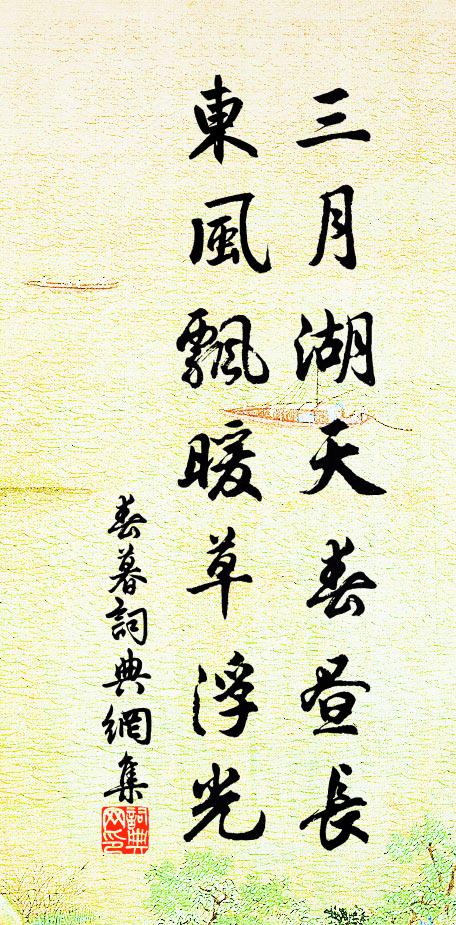 三月湖天春昼長
東風飄暖草浮光
春暮詞典網集
詞典
网印